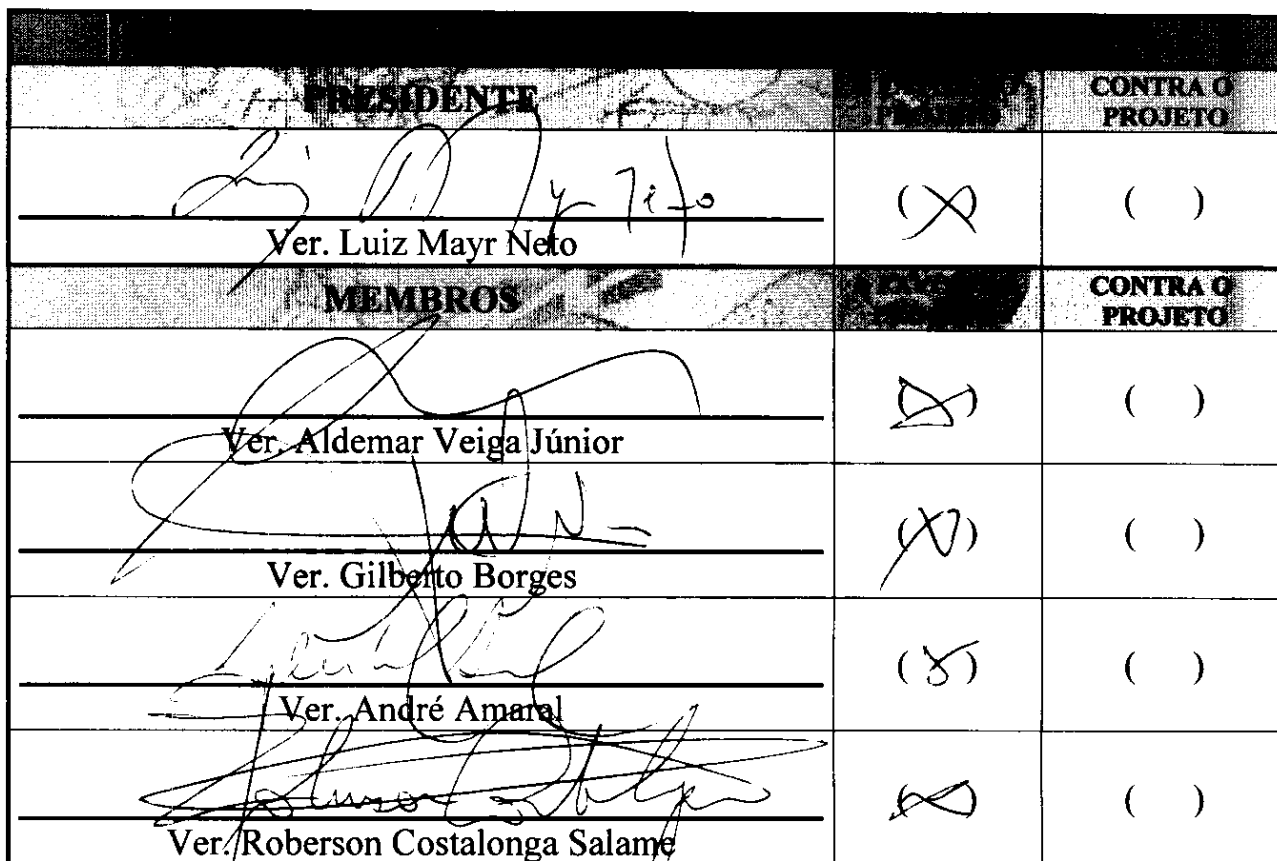 PRESIDENTE
PROJETO
CONTRA O
PROJETO
( X )
( )
Ver. Luiz Mayr Neto
MEMBROS
CONTRA O
PROJETO
( X )
( )
Ver. Aldemar Veiga Júnior
( X )
( )
Ver. Gilberto Borges
( X )
( )
Ver. André Amaral
( X )
( )
Ver. Roberson Costalonga Salame